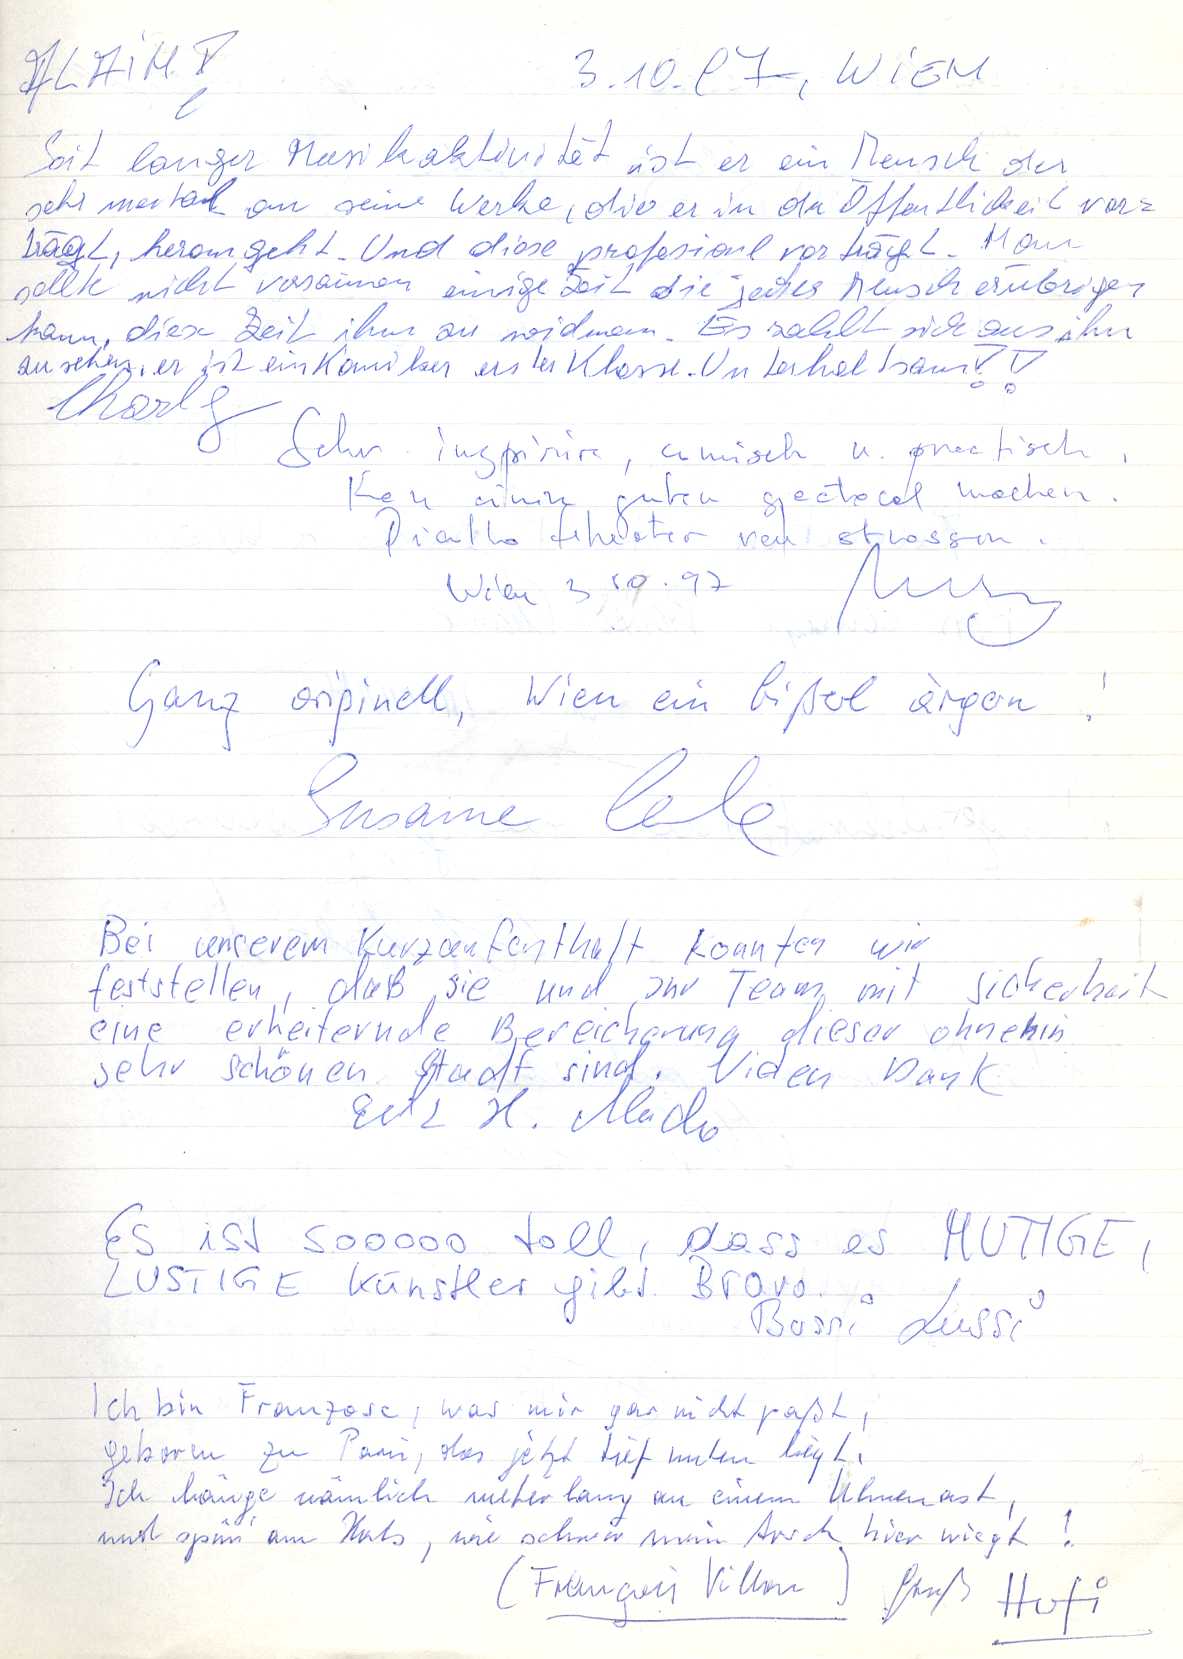 ALAIN! 3.10.97, WIEN
Seit langer Musikaktivität ist er ein Mensch der
sehr mental an seine Werke, die er in da Öffentlichkeit vor=
trägt, herangeht. Und diese profesionel vorträgt. Man
sollte nicht versäumen einige Zeit die jeder Mensch erübrigen
kann, diese Zeit ihm zu widmen. Es zahlt sich aus ihn
anzusehen, er ist ein Komiker erster Klasse. Unterhaltsam!!
Charly
Sehr inspirire, comisch u. practisch.
Ken einin guten spectacel machen.
theater von strassen.
Wien 3 10.97
Ganz originell, Wien ein bißerl ärgern!
Susanne
Bei unserem Kurzaufenthalt konnten wir
feststellen, daß sie und ihr Team mit sicherheit
eine erheiternde Bereicherung dieser ohnehin
sehr schönen Stadt sind. Vielen Dank
H.
Es ist sooooo toll, dass es MUTIGE,
LUSTIGE Künstler gibt. Bravo.
Bussi Lussi
Ich bin Franzose, was mir gar nicht paßt,
geboren zu Paris, das jetzt tief unten liegt.
Ich hänge nämlich meterlang an einem Ulmenast,
und spür' am Hals, wie schwer mein Arsch hier wiegt!
(François Villon) Gruß Hufi